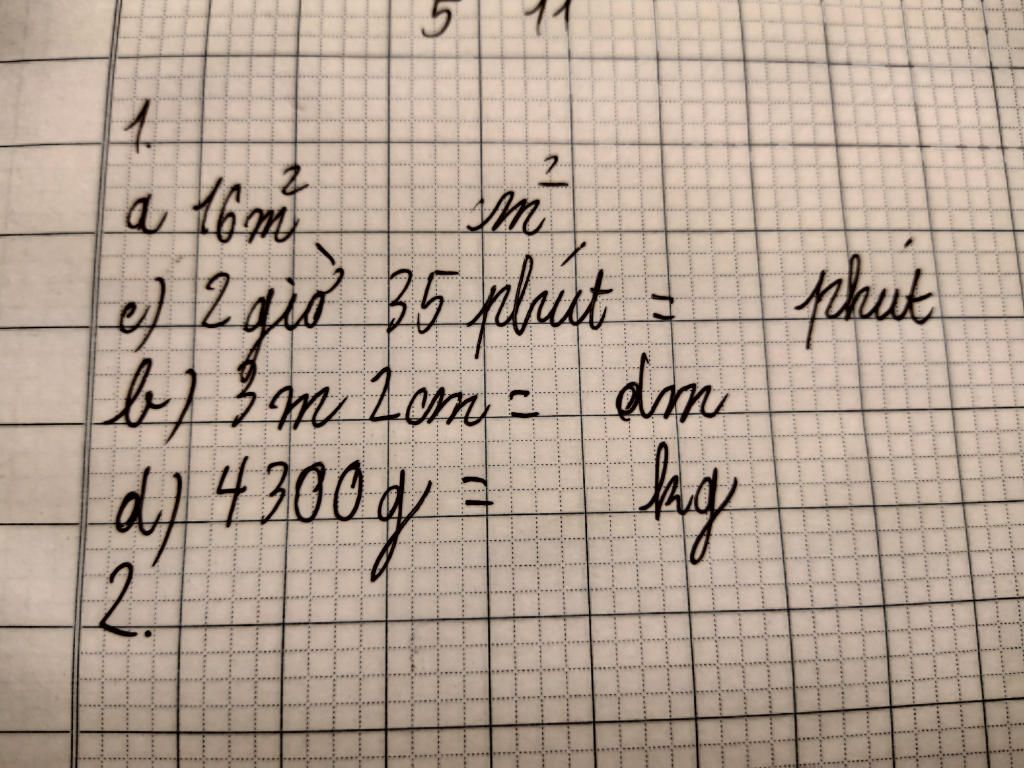 5 11
1.
a 16m² m²
c) 2 giờ 35 phút = phút
b) 3m 2cm = dm
d) 4300g = kg
2.